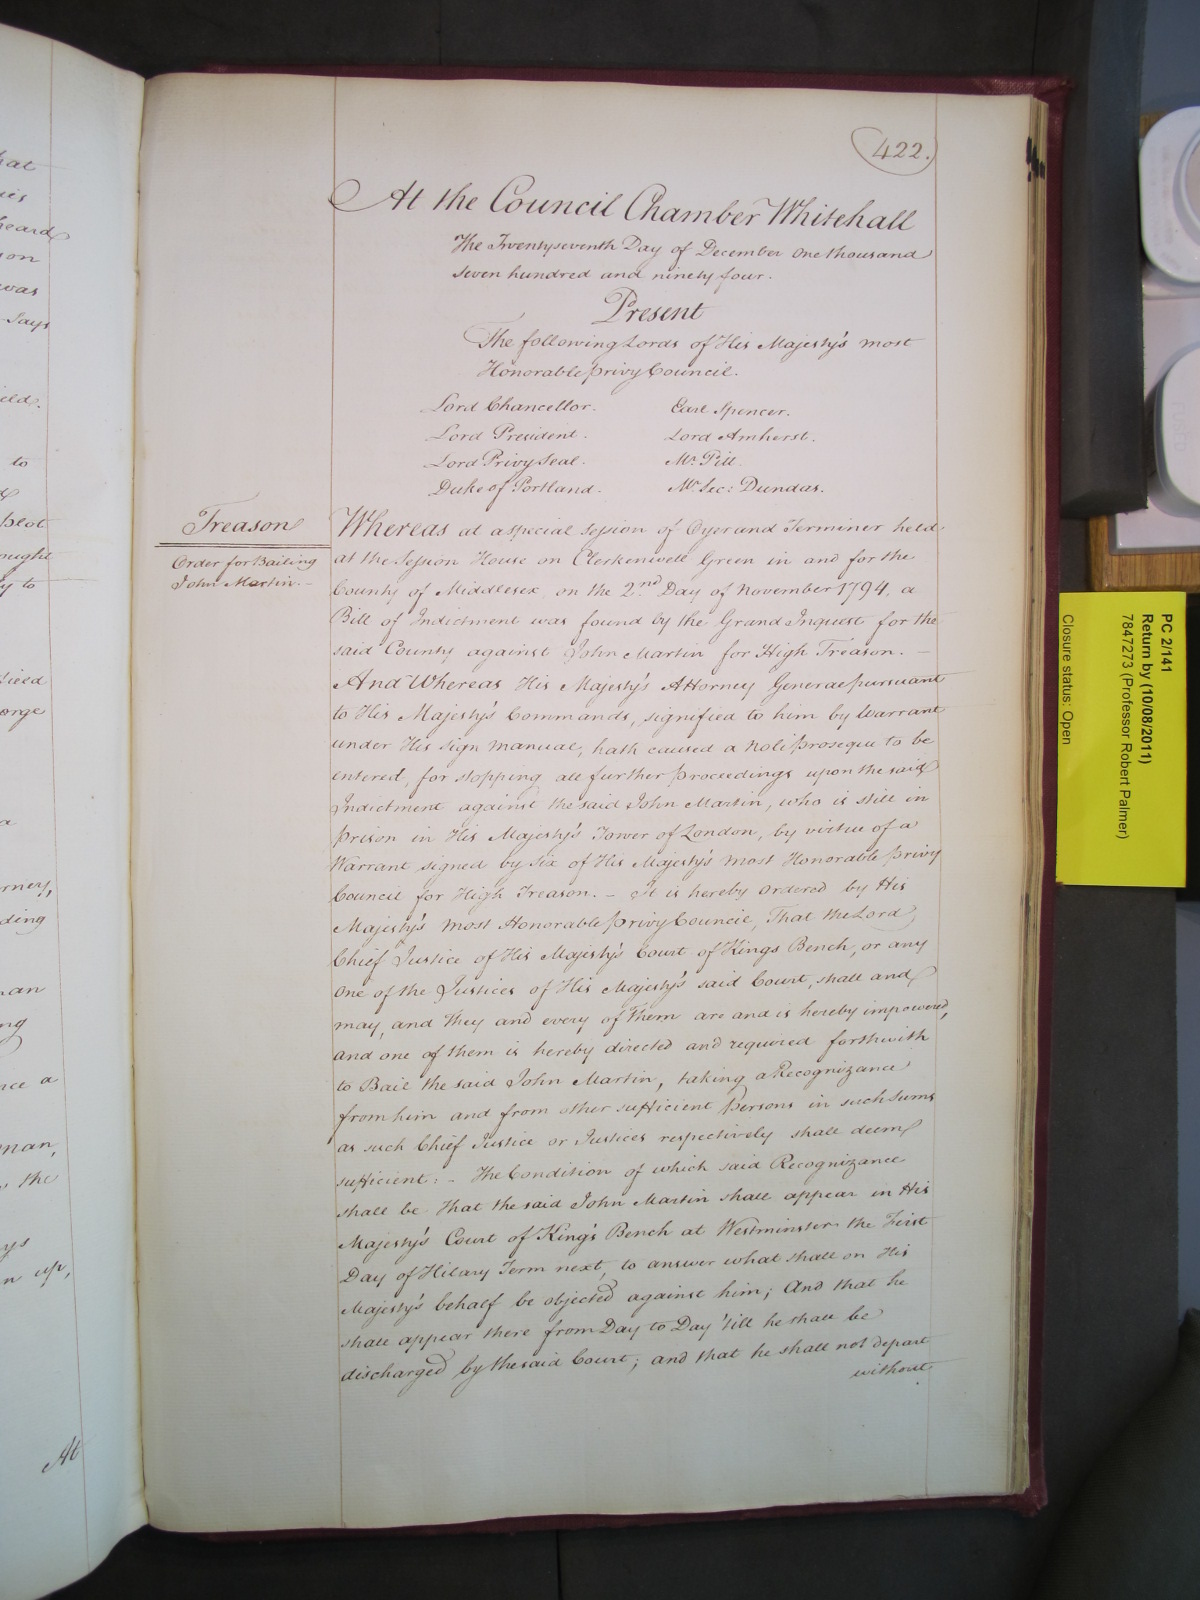 422.
At the Council Chamber Whitehall
The Twentyseventh Day of December One thousand
seven hundred and ninety four.
Present
The following Lords of His Majesty's most
Honorable Privy Council.
Lord Chancellor. Earl Spencer.
Lord President. Lord Amherst.
Lord Privy Seal. Mr. Pitt.
Duke of Portland. Mr. Sec: Dundas.
Treason
Order for Bailing
John Martin. -
Whereas at a special Session of Oyer and Terminer held
at the Session House on Clerkenwell Green in and for the
County of Middlesex, on the 2nd Day of November 1794, a
Bill of Indictment was found by the Grand Inquest for the
said County against John Martin for High Treason. -
And Whereas His Majesty's Attorney General pursuant
to His Majesty's Commands, signified to him by Warrant
under His Sign Manual, hath caused a Noli prosequi to be
entered, for stopping all further proceedings upon the said
Indictment against the said John Martin, who is still in
Prison in His Majesty's Tower of London, by virtue of a
Warrant signed by Six of His Majesty's most Honorable Privy
Council for High Treason. - It is hereby Ordered by His
Majesty's most Honorable Privy Council, That the Lord
Chief Justice of His Majesty's Court of Kings Bench, or any
One of the Justices of His Majesty's said Court, shall and
may, and They and every of Them are and is hereby impowered,
and one of them is hereby directed and required forthwith
to Bail the said John Martin, taking a Recognizance
from him and from other sufficient Persons in such Sums
as such Chief Justice or Justices respectively shall deem
sufficient: - The Condition of which said Recognizance
shall be That the said John Martin shall appear in His
Majesty's Court of King's Bench at Westminster the First
Day of Hilary Term next, to answer what shall on His
Majesty's behalf be objected against him; And that he
shall appear there from Day to Day 'till he shall be
discharged by the said Court; and that he shall not depart
without
hat
heard
on
was
says
to
ought
y to
orge
a
rney,
ding
man
ng
nce a
man,
the
ys
n up,
At
PC 2/141
Return by (10/08/2011)
7847273 (Professor Robert Palmer)
Closure status: Open